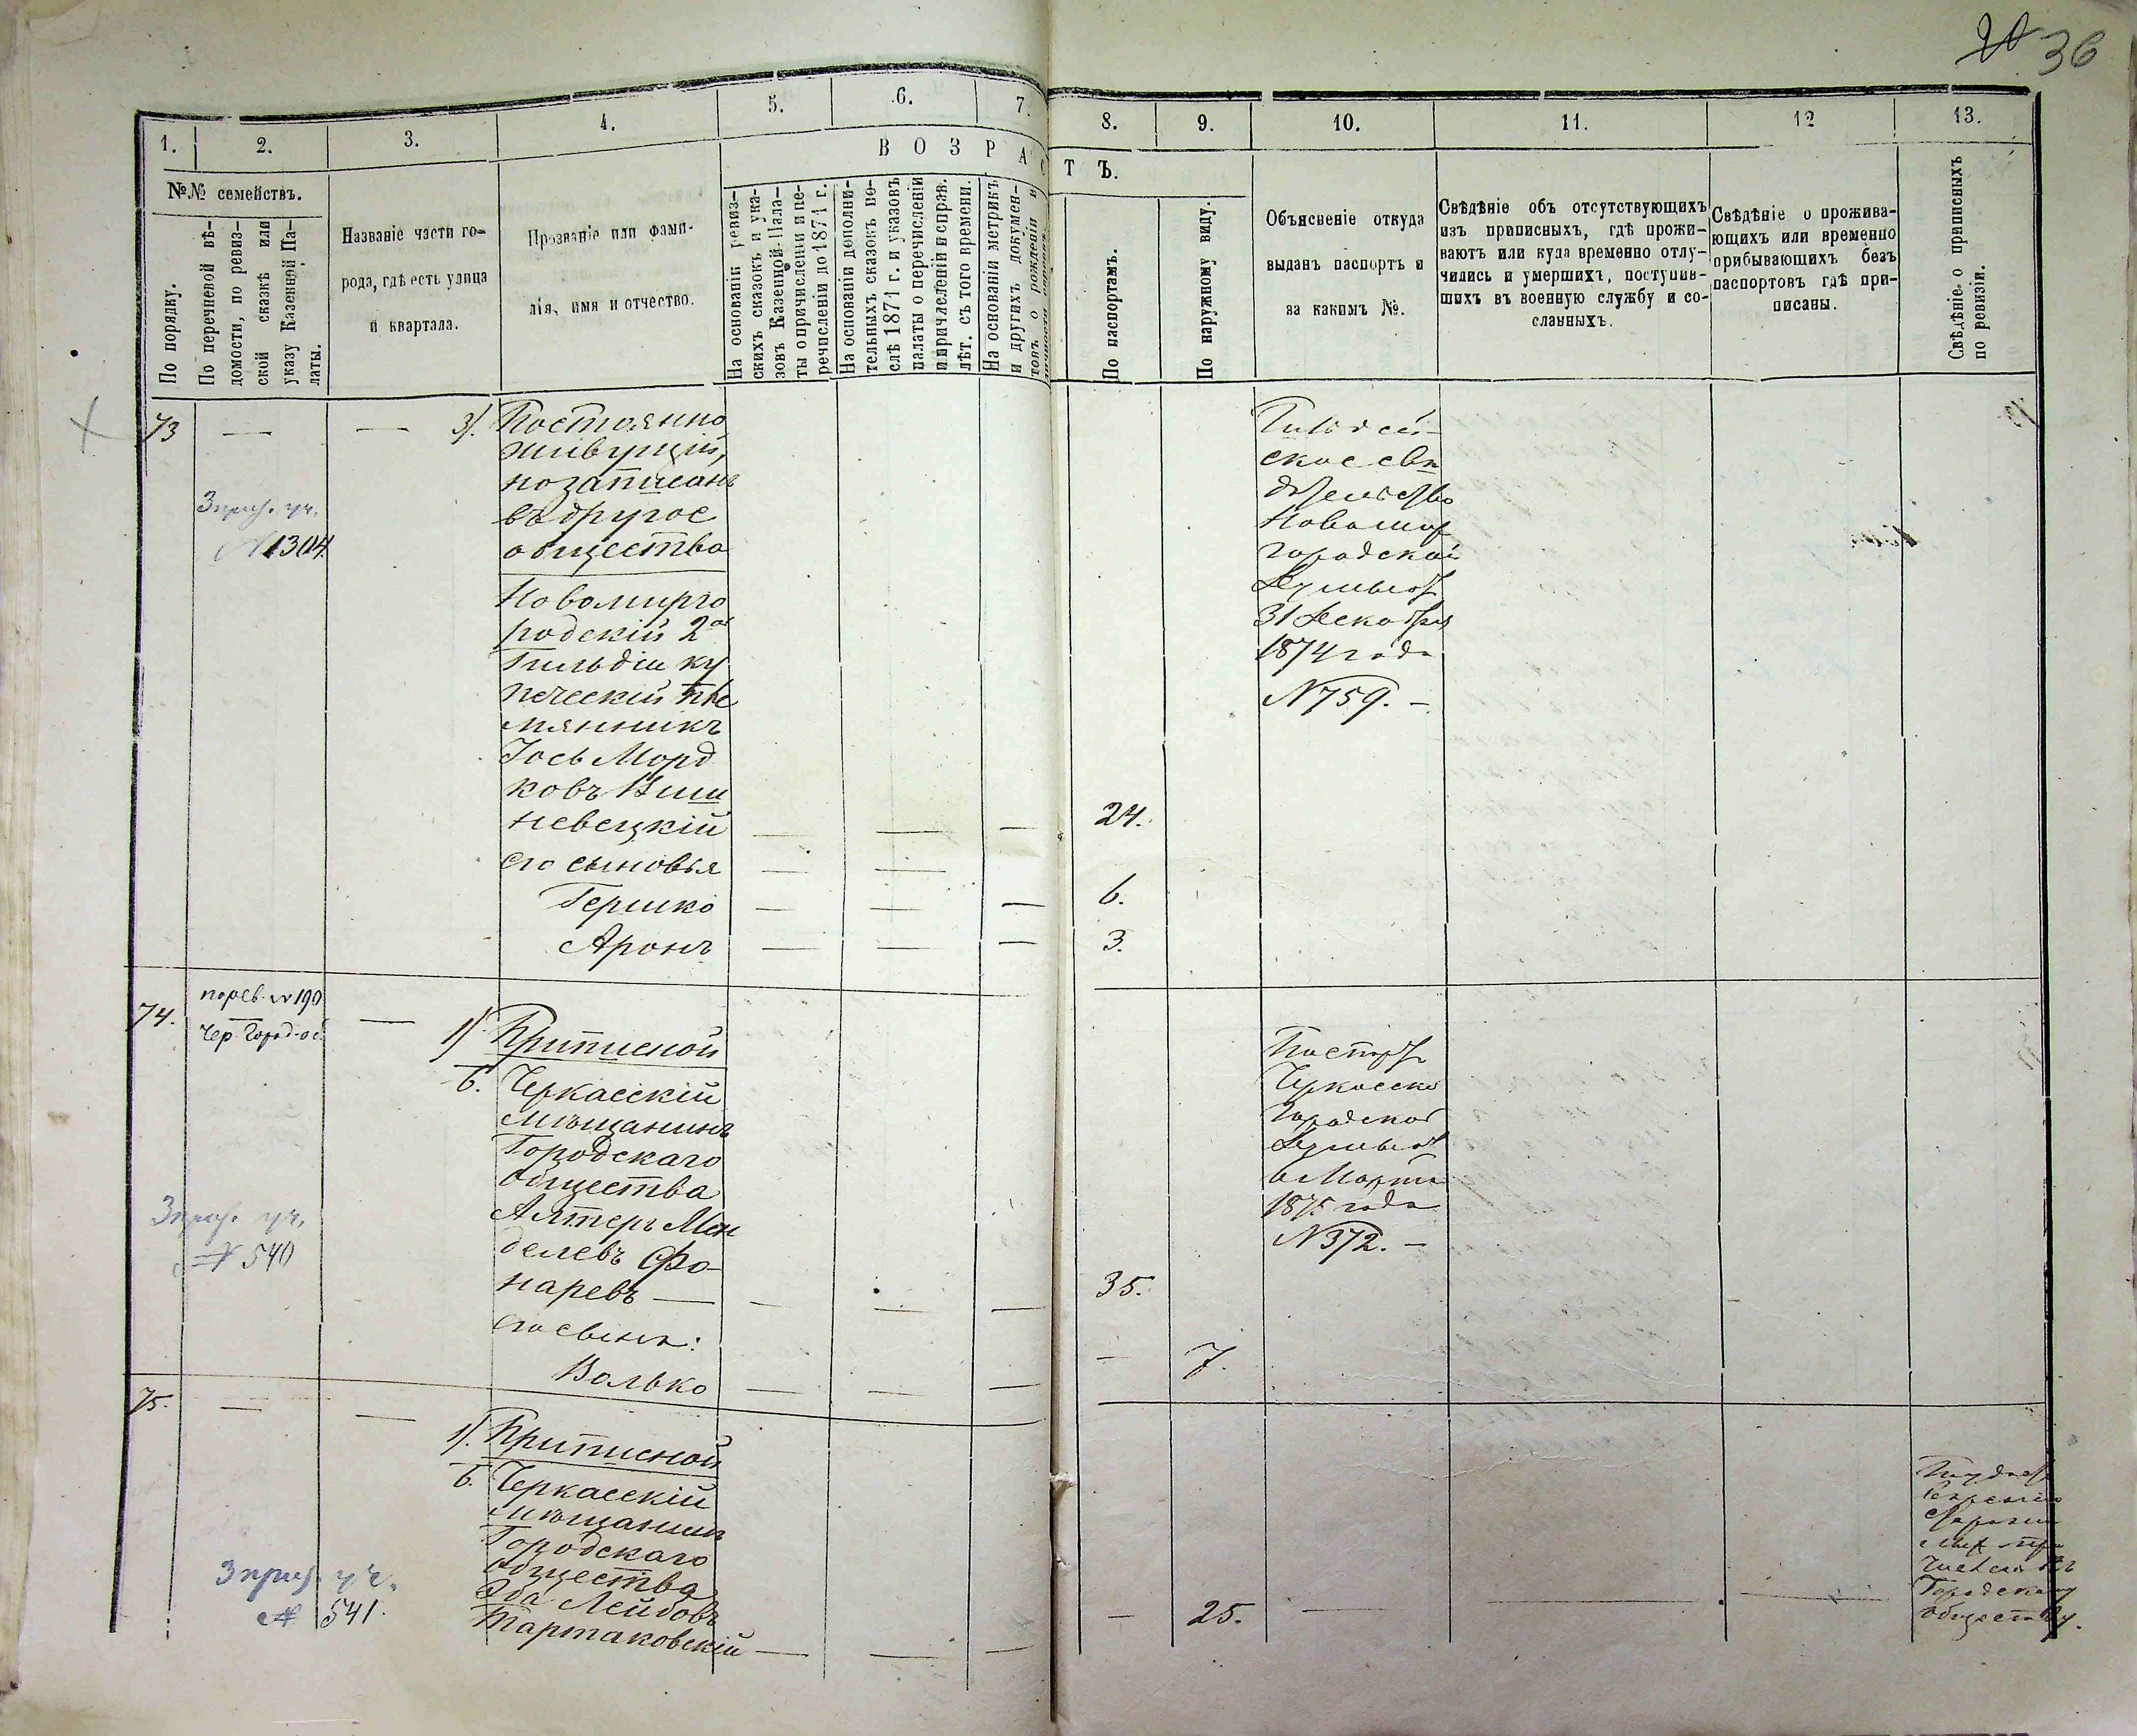 36
1.
2.
3.
4.
5.
6.
7.
8.
9.
10.
11.
12
13.
В О З Р А С Т Ъ.
№№ семействъ.
По порядку.
По перечневой вѣ-
домости, по ревиз-
ской сказкѣ или
указу Казенной Па-
латы.
Названіе части го-
рода, гдѣ есть улица
и квартала.
Прозваніе или фами-
лія, имя и отчество.
На основаніи ревиз-
скихъ сказокъ и ука-
зовъ Казенной Пала-
ты о причисленіи и пе-
речисленіи до 1871 г.
На основаніи дополни-
тельныхъ сказокъ по-
слѣ 1871 г. и указовъ
палаты о перечисленіи
и причисленіи и справ.
лѣт. съ того времени.
На основаніи метрикъ
и другихъ докумен-
товъ о рожденіи и
По паспортамъ.
По наружному виду.
Объясненіе откуда
выданъ паспортъ и
за какимъ №.
Свѣдѣніе объ отсутствующихъ
изъ приписныхъ, гдѣ прожи-
ваютъ или куда временно отлу-
чились и умершихъ, поступив-
шихъ въ военную службу и со-
сланныхъ.
Свѣдѣніе о прожива-
ющихъ или временно
прибывающихъ безъ
паспортовъ гдѣ при-
писаны.
Свѣдѣніе о приписныхъ
по ревизіи.
73
3 приз. уч.
№ 1304
3).
Постоянно
живущій,
но записанъ
въ другое
общество
Новомирго
родскій 2ой
Гильдіи ку
печескій пле
мянникъ
Іось Морд
ковъ Виш
невецкій
24.
его сыновья
Гершко
6.
Аронъ
3.
Гильдей-
ское сви
дѣтельство
Новомир
городской
Думы от
31 Декабря
1874 года
№ 759. —
74.
пер. св. № 190
Чер. Город. об.
1)
Приписной
б.
Черкасскій
мѣщанинъ
Городскаго
общества
Алтеръ Мен
делевъ Фо-
наревъ —
35.
его сынъ:
Волько
7.
3 приз. уч.
№ 540
Паспорт
Черкасской
Городской
Думы от
6 Марта
1875 года
№ 372. —
75.
1).
Приписной
б.
Черкасскій
мѣщанинъ
Городскаго
общества
Эба Лейбовъ
Тартаковскій
25.
3 приз. уч.
№ 541.
Городскому
обществу.